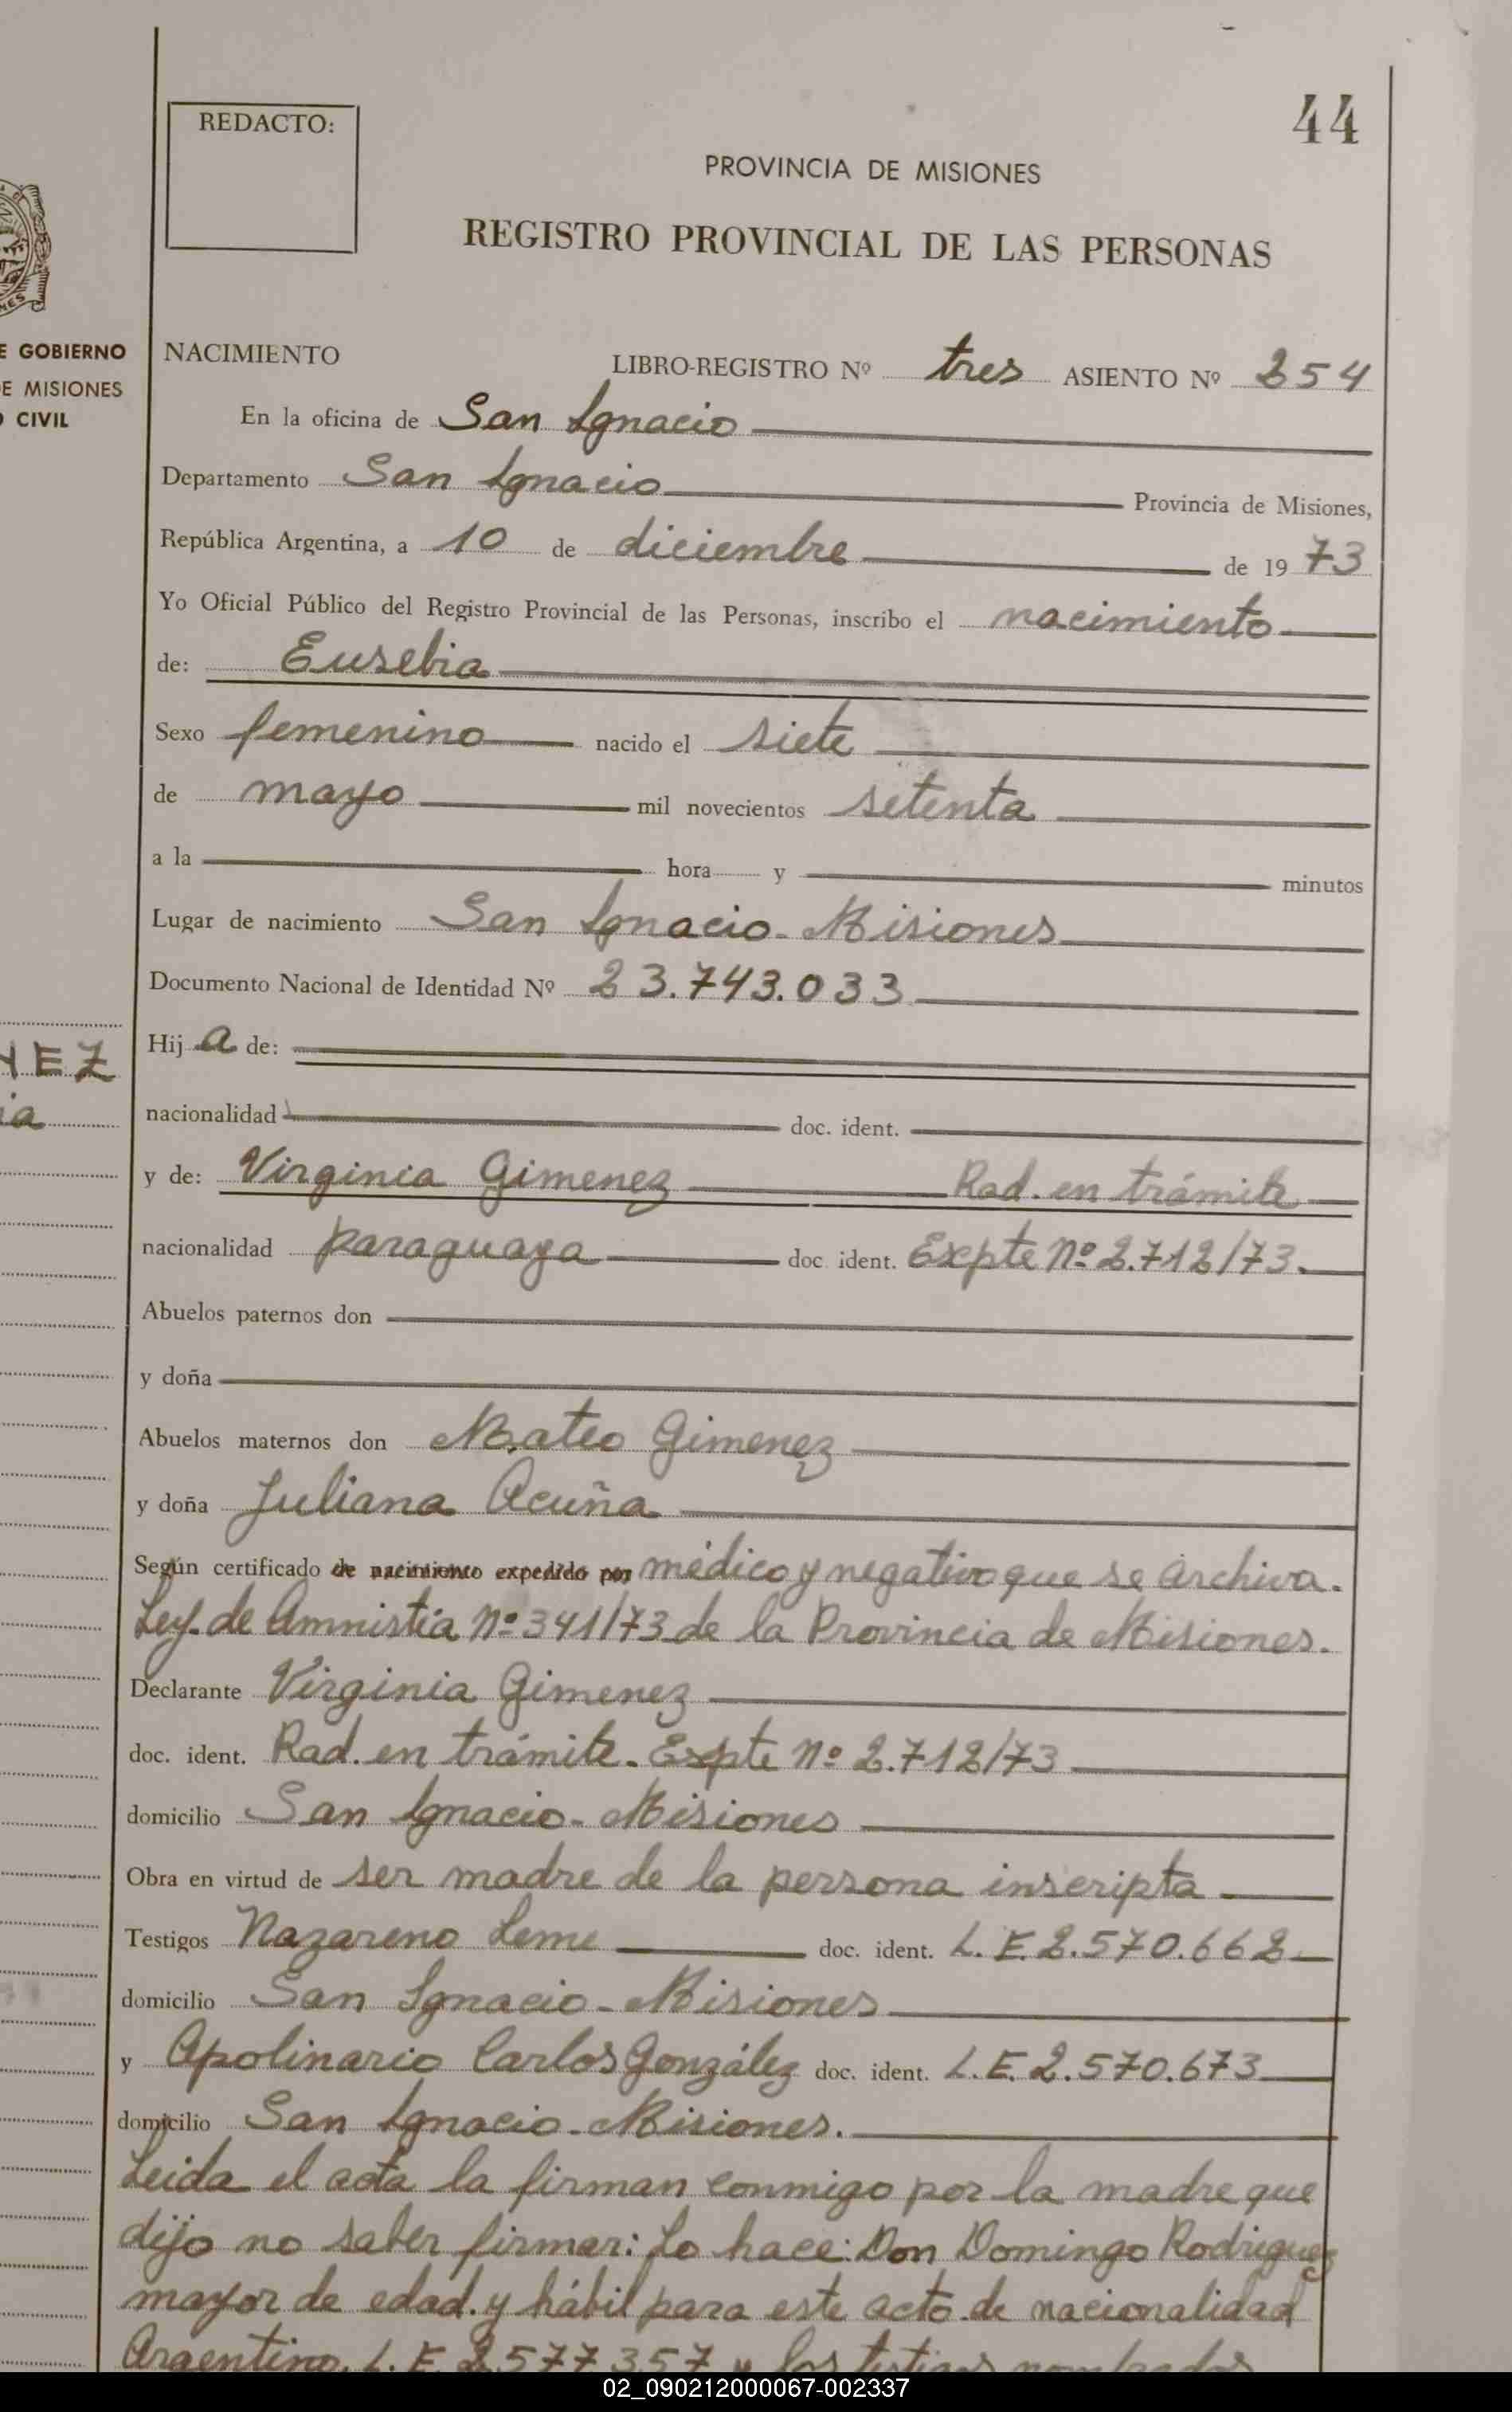 44
REDACTO:
PROVINCIA DE MISIONES
REGISTRO PROVINCIAL DE LAS PERSONAS
E GOBIERNO
DE MISIONES
CIVIL
NEZ
ia
NACIMIENTO LIBRO-REGISTRO Nº tres ASIENTO Nº 254
En la oficina de San Ignacio
Departamento San Ignacio Provincia de Misiones,
República Argentina, a 10 de diciembre de 1973
Yo Oficial Público del Registro Provincial de las Personas, inscribo el nacimiento
de: Eusebia
Sexo femenino nacido el siete
de mayo mil novecientos setenta
a la hora y minutos
Lugar de nacimiento San Ignacio - Misiones
Documento Nacional de Identidad Nº 23.743.033
Hija de:
nacionalidad doc. ident.
y de: Virginia Gimenez Rad. en trámite
nacionalidad paraguaya doc ident. Expte Nº 2.712/73.
Abuelos paternos don
y doña
Abuelos maternos don Mateo Gimenez
y doña Juliana Acuña
Según certificado de nacimiento expedido por médico y negativo que se archiva.
Ley de Amnistía Nº 341/73 de la Provincia de Misiones.
Declarante Virginia Gimenez
doc. ident. Rad. en trámite. Expte Nº 2.712/73
domicilio San Ignacio - Misiones
Obra en virtud de ser madre de la persona inscripta.
Testigos Nazareno Leme doc. ident. L.E. 2.570.662
domicilio San Ignacio - Misiones
y Apolinario Carlos González doc. ident. L.E. 2.570.673
domicilio San Ignacio - Misiones.
Leida el acta la firman conmigo por la madre que
dijo no saber firmar: Lo hace: Don Domingo Rodriguez
mayor de edad y hábil para este acto de nacionalidad
Argentino. L.E. 2.577.357 y los testigos nombrados
02_090212000067-002337